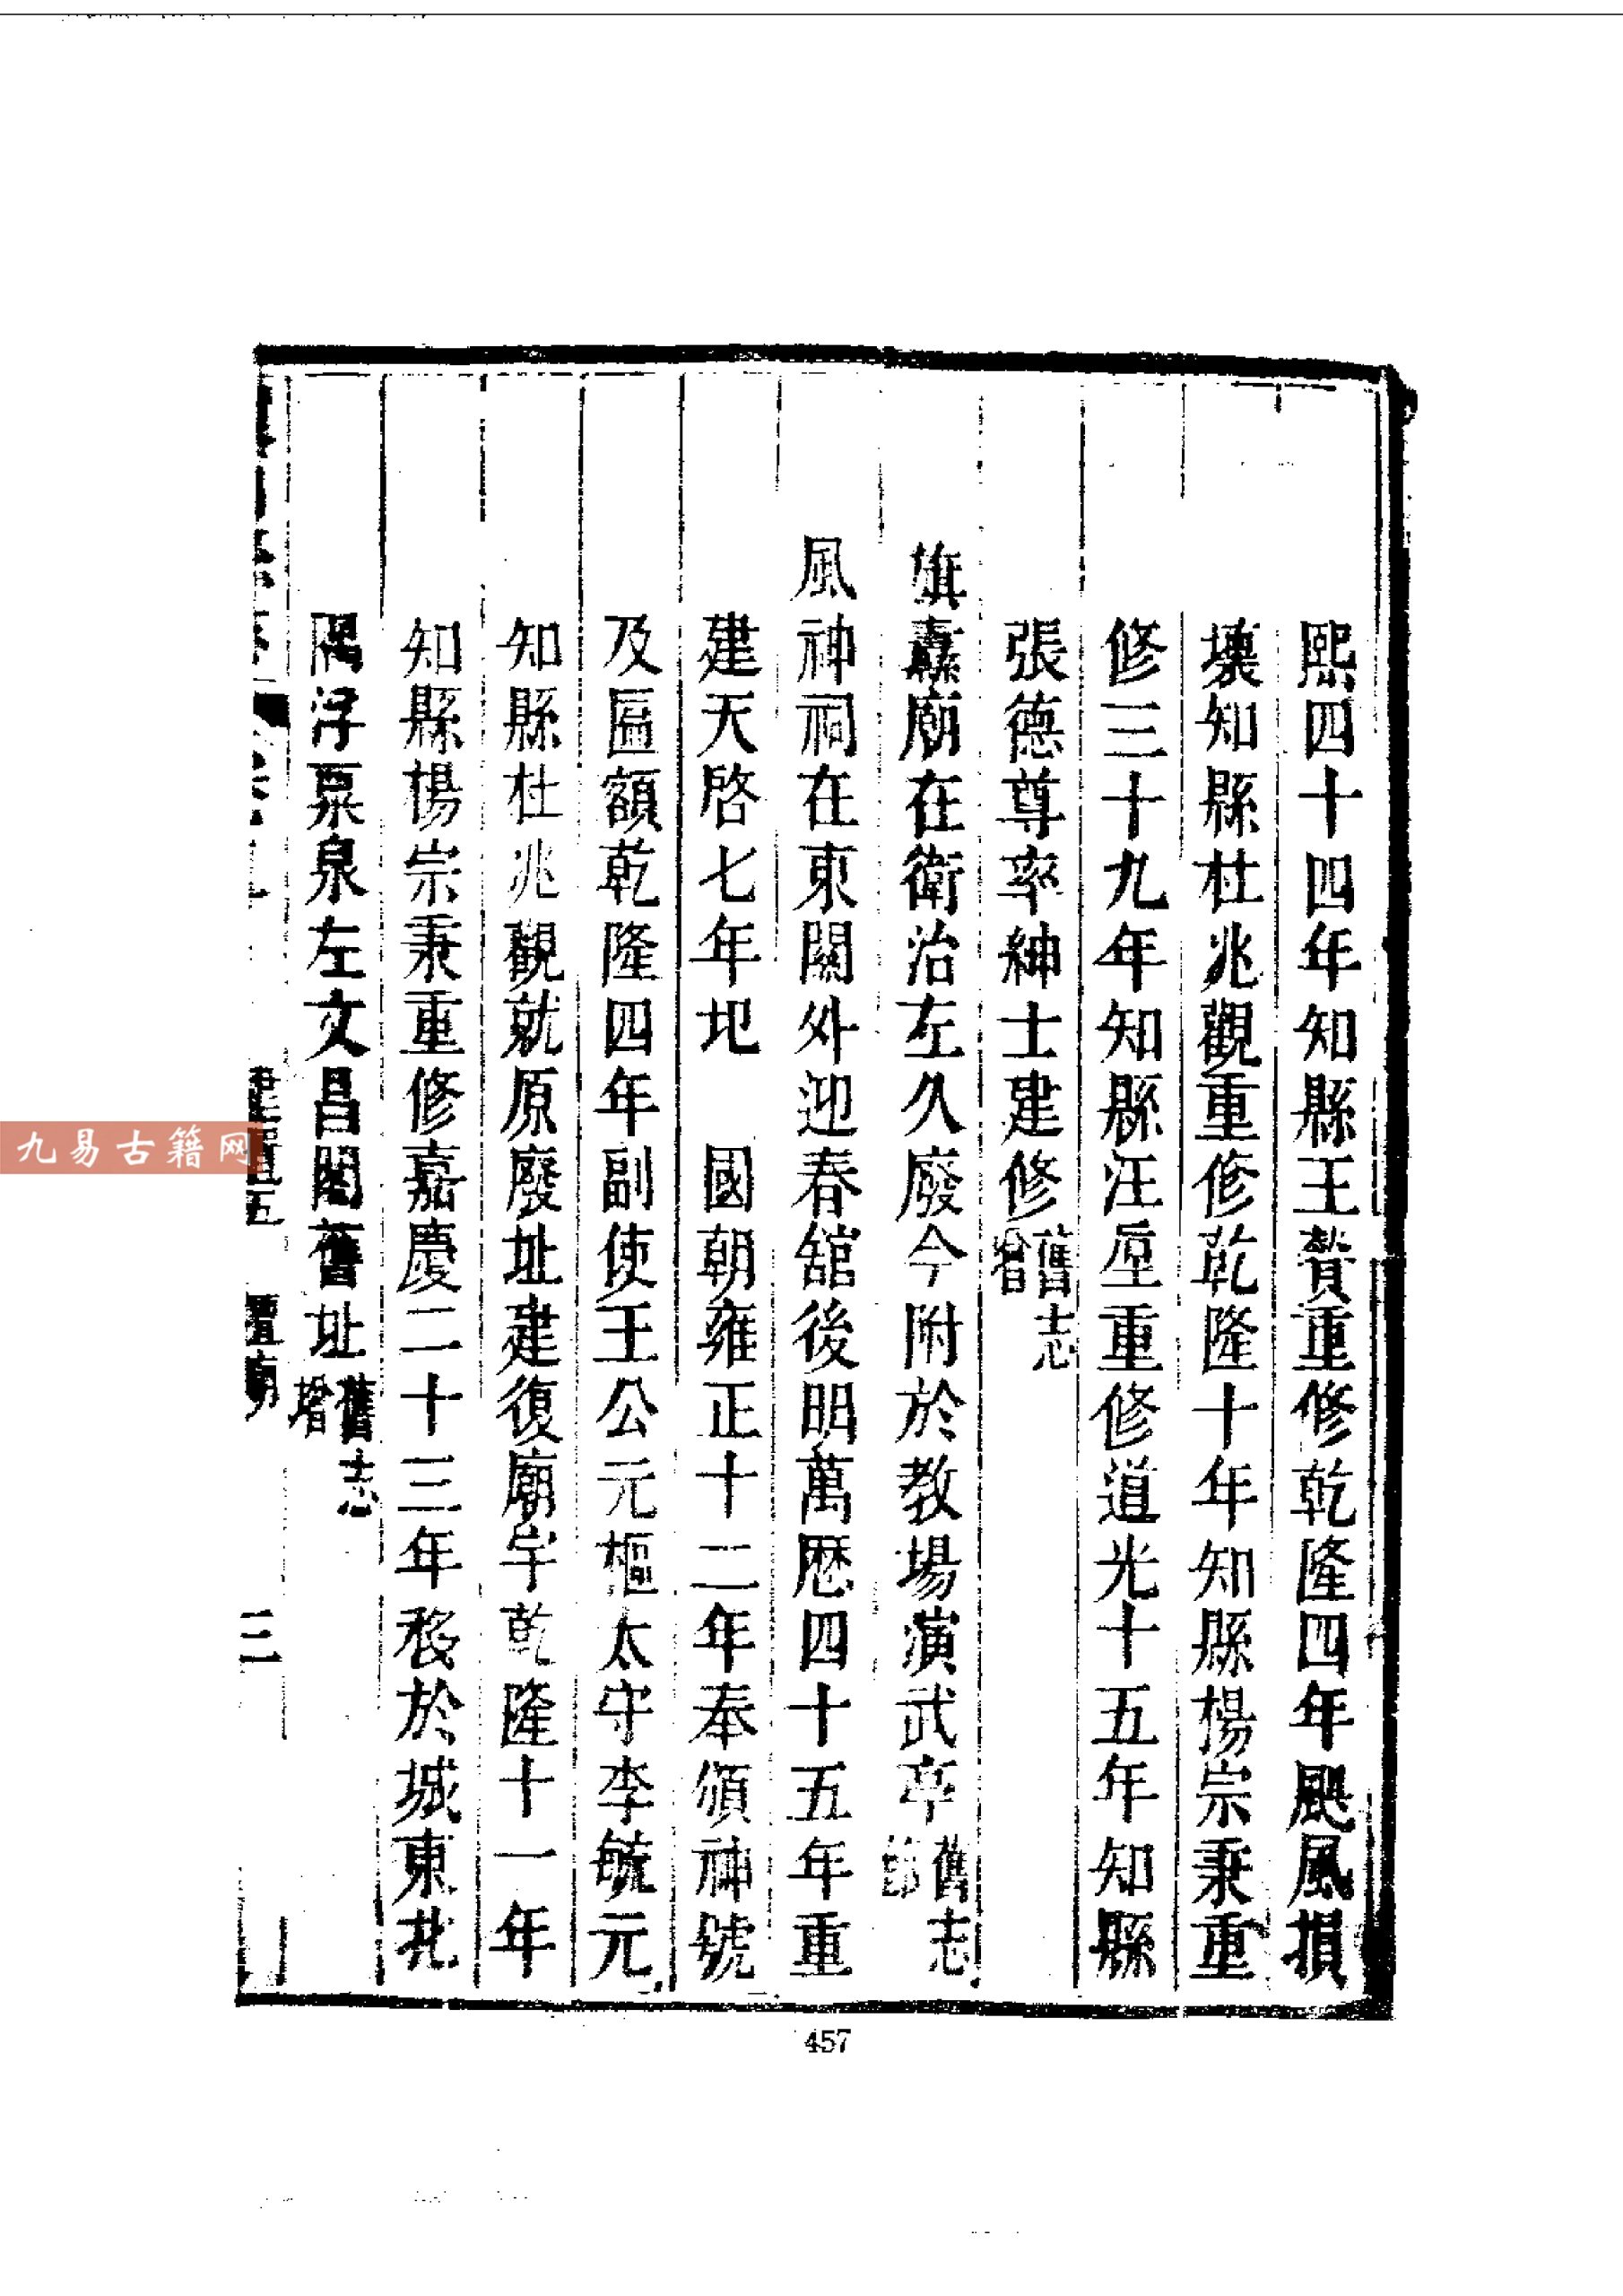 熙四十四年知縣王贊重修乾隆四年颶風損
壞知縣杜兆觀重修乾隆十年知縣楊宗秉重
修三十九年知縣汪垕重修道光十五年知縣
張德尊率紳士建修舊志增
旗纛廟在衛治左久廢今附於教場演武亭舊志
風神祠在東關外迎春舘後明萬歷四十五年重
建天啓七年圯　國朝雍正十二年奉頒神號
及匾額乾隆四年副使王公元樞太守李毓元
知縣杜兆觀就原廢址建復廟宇乾隆十一年
知縣楊宗秉重修嘉慶二十三年移於城東北
隅浮粟泉左文昌閣舊址舊志增
建置五 壇廟 三
九易古籍网
457